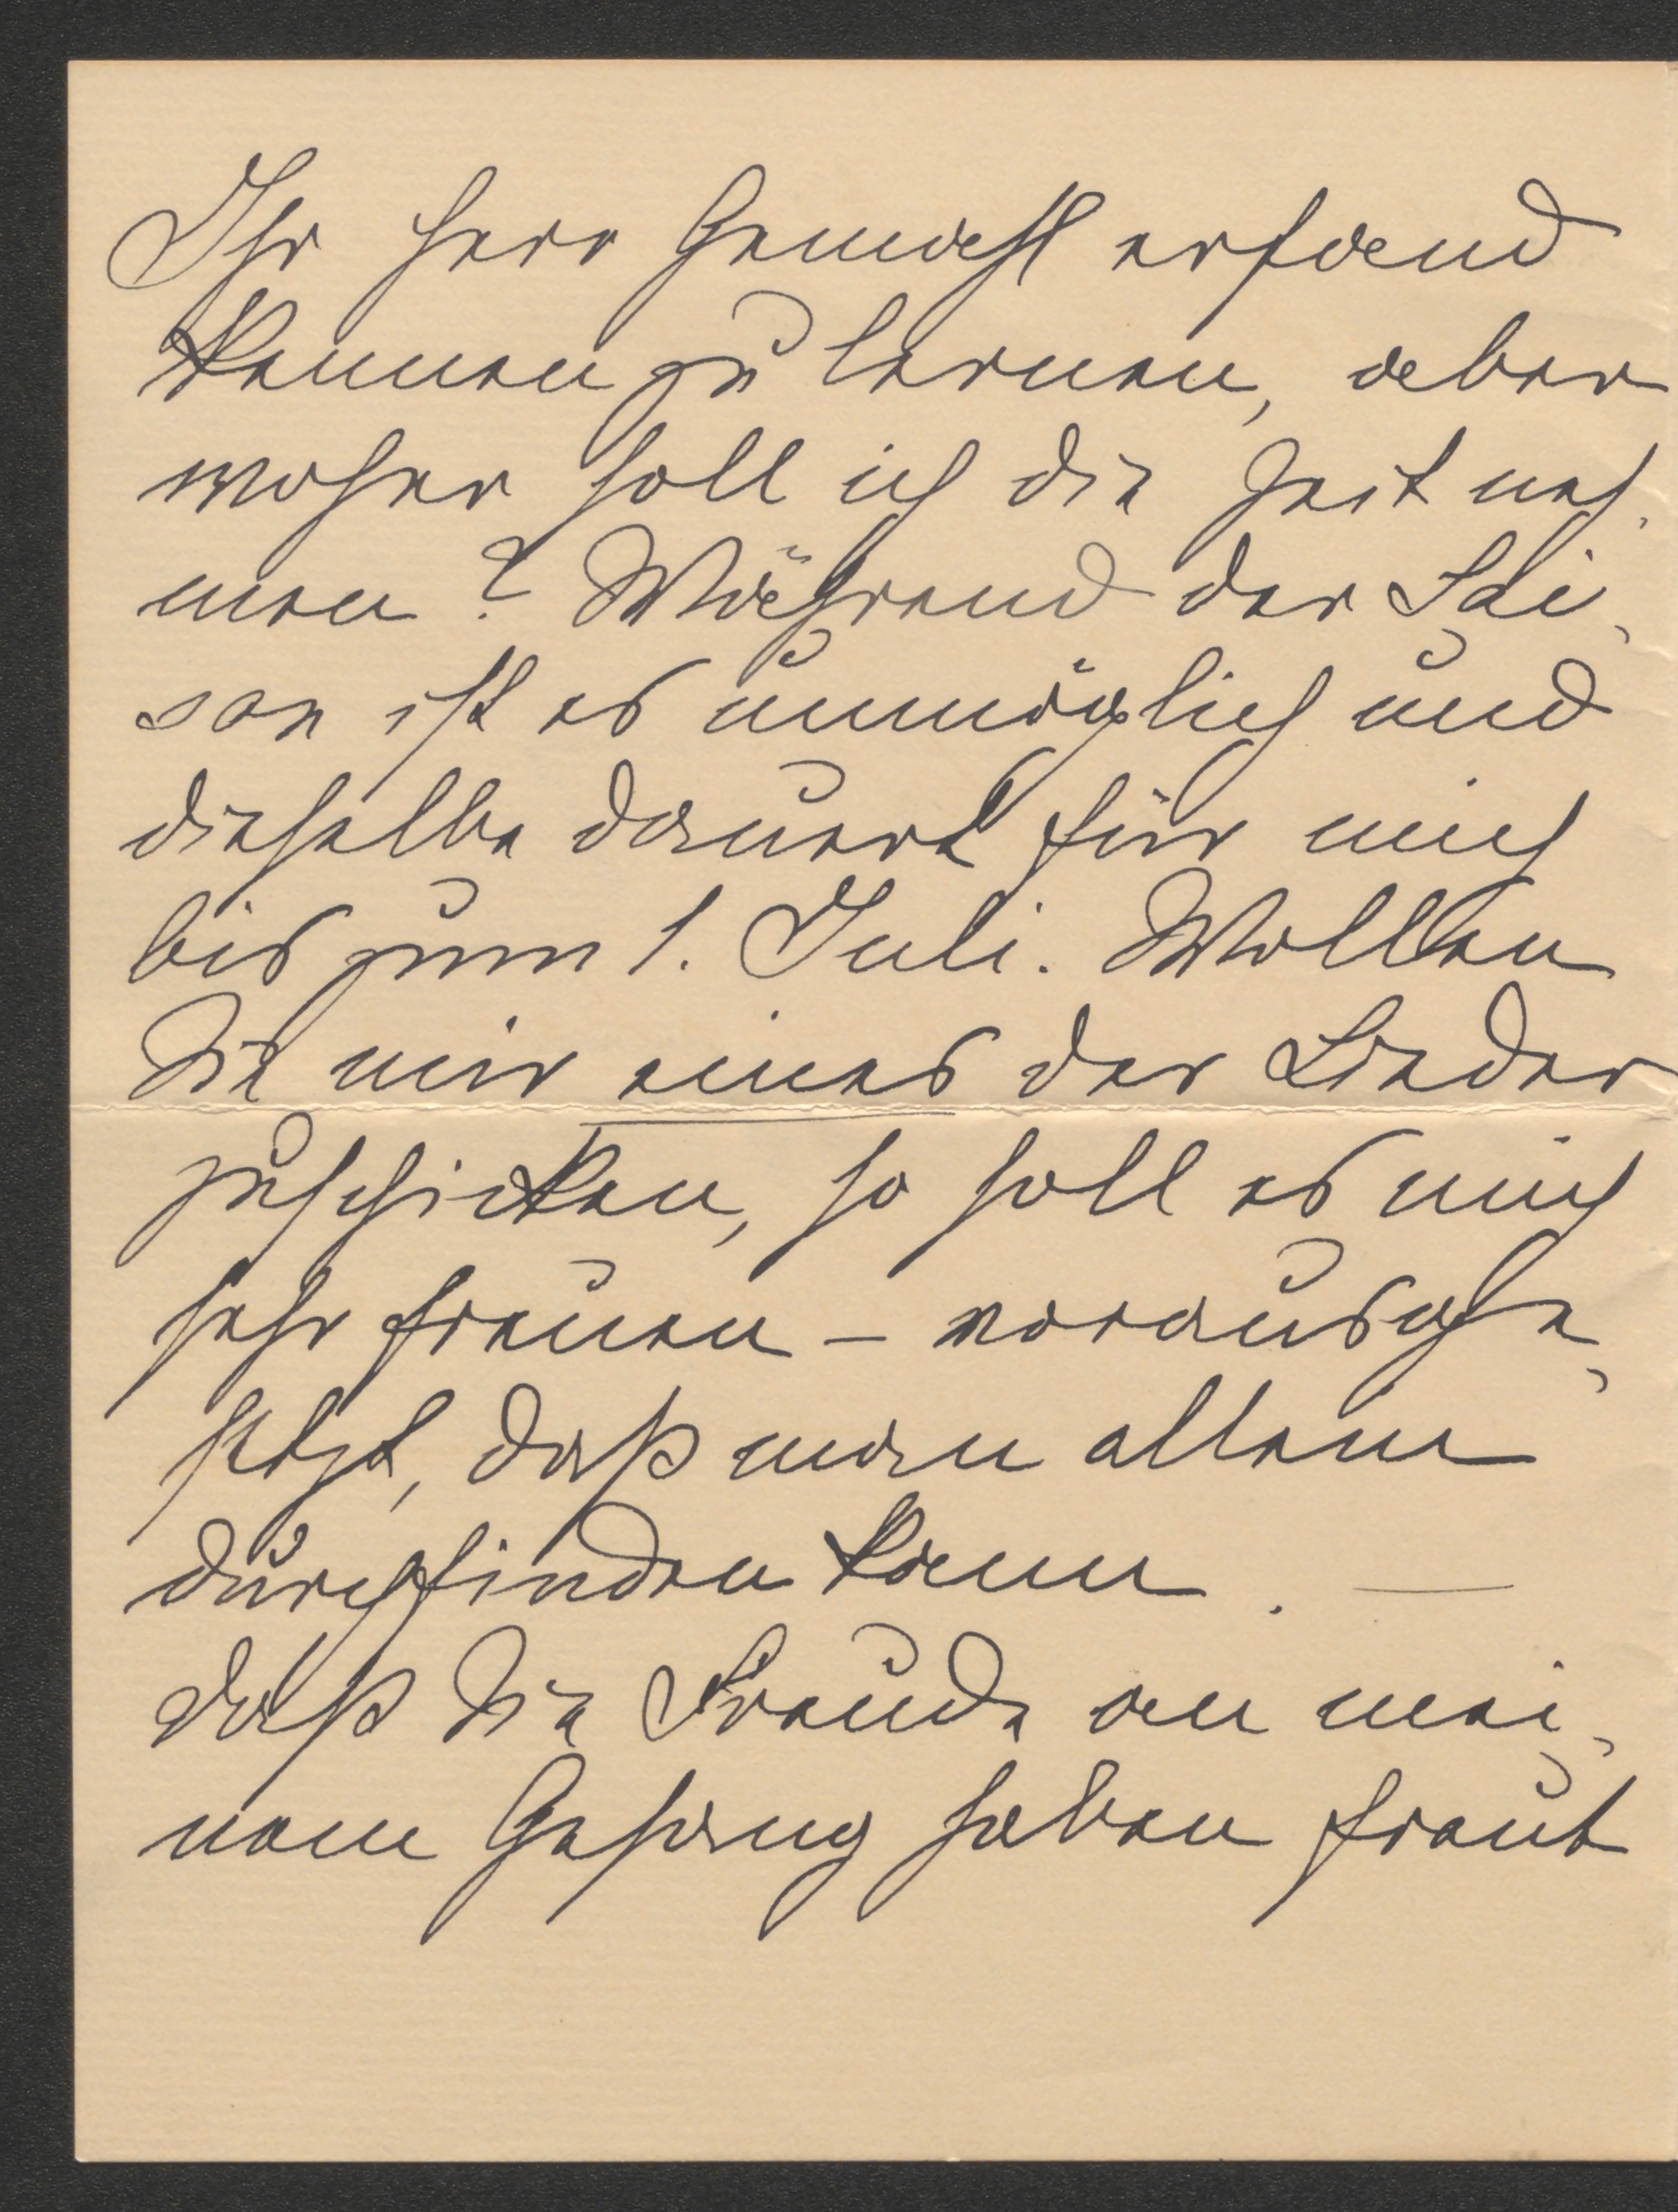 Ihr Herr Gemahl erfand
kennen zu lernen, aber
woher soll ich die Zeit neh-
men? Während der Sai-
son ist es unmöglich und
dieselbe dauert für mich
bis zum 1. Juli. Wollen
Sie mir eines der Lieder
zuschicken, so soll es mich
sehr freuen – vorausge-
setzt, daß man allein
durchfinden kann. —
Daß Sie Freude an mei-
nem Gesang haben freut